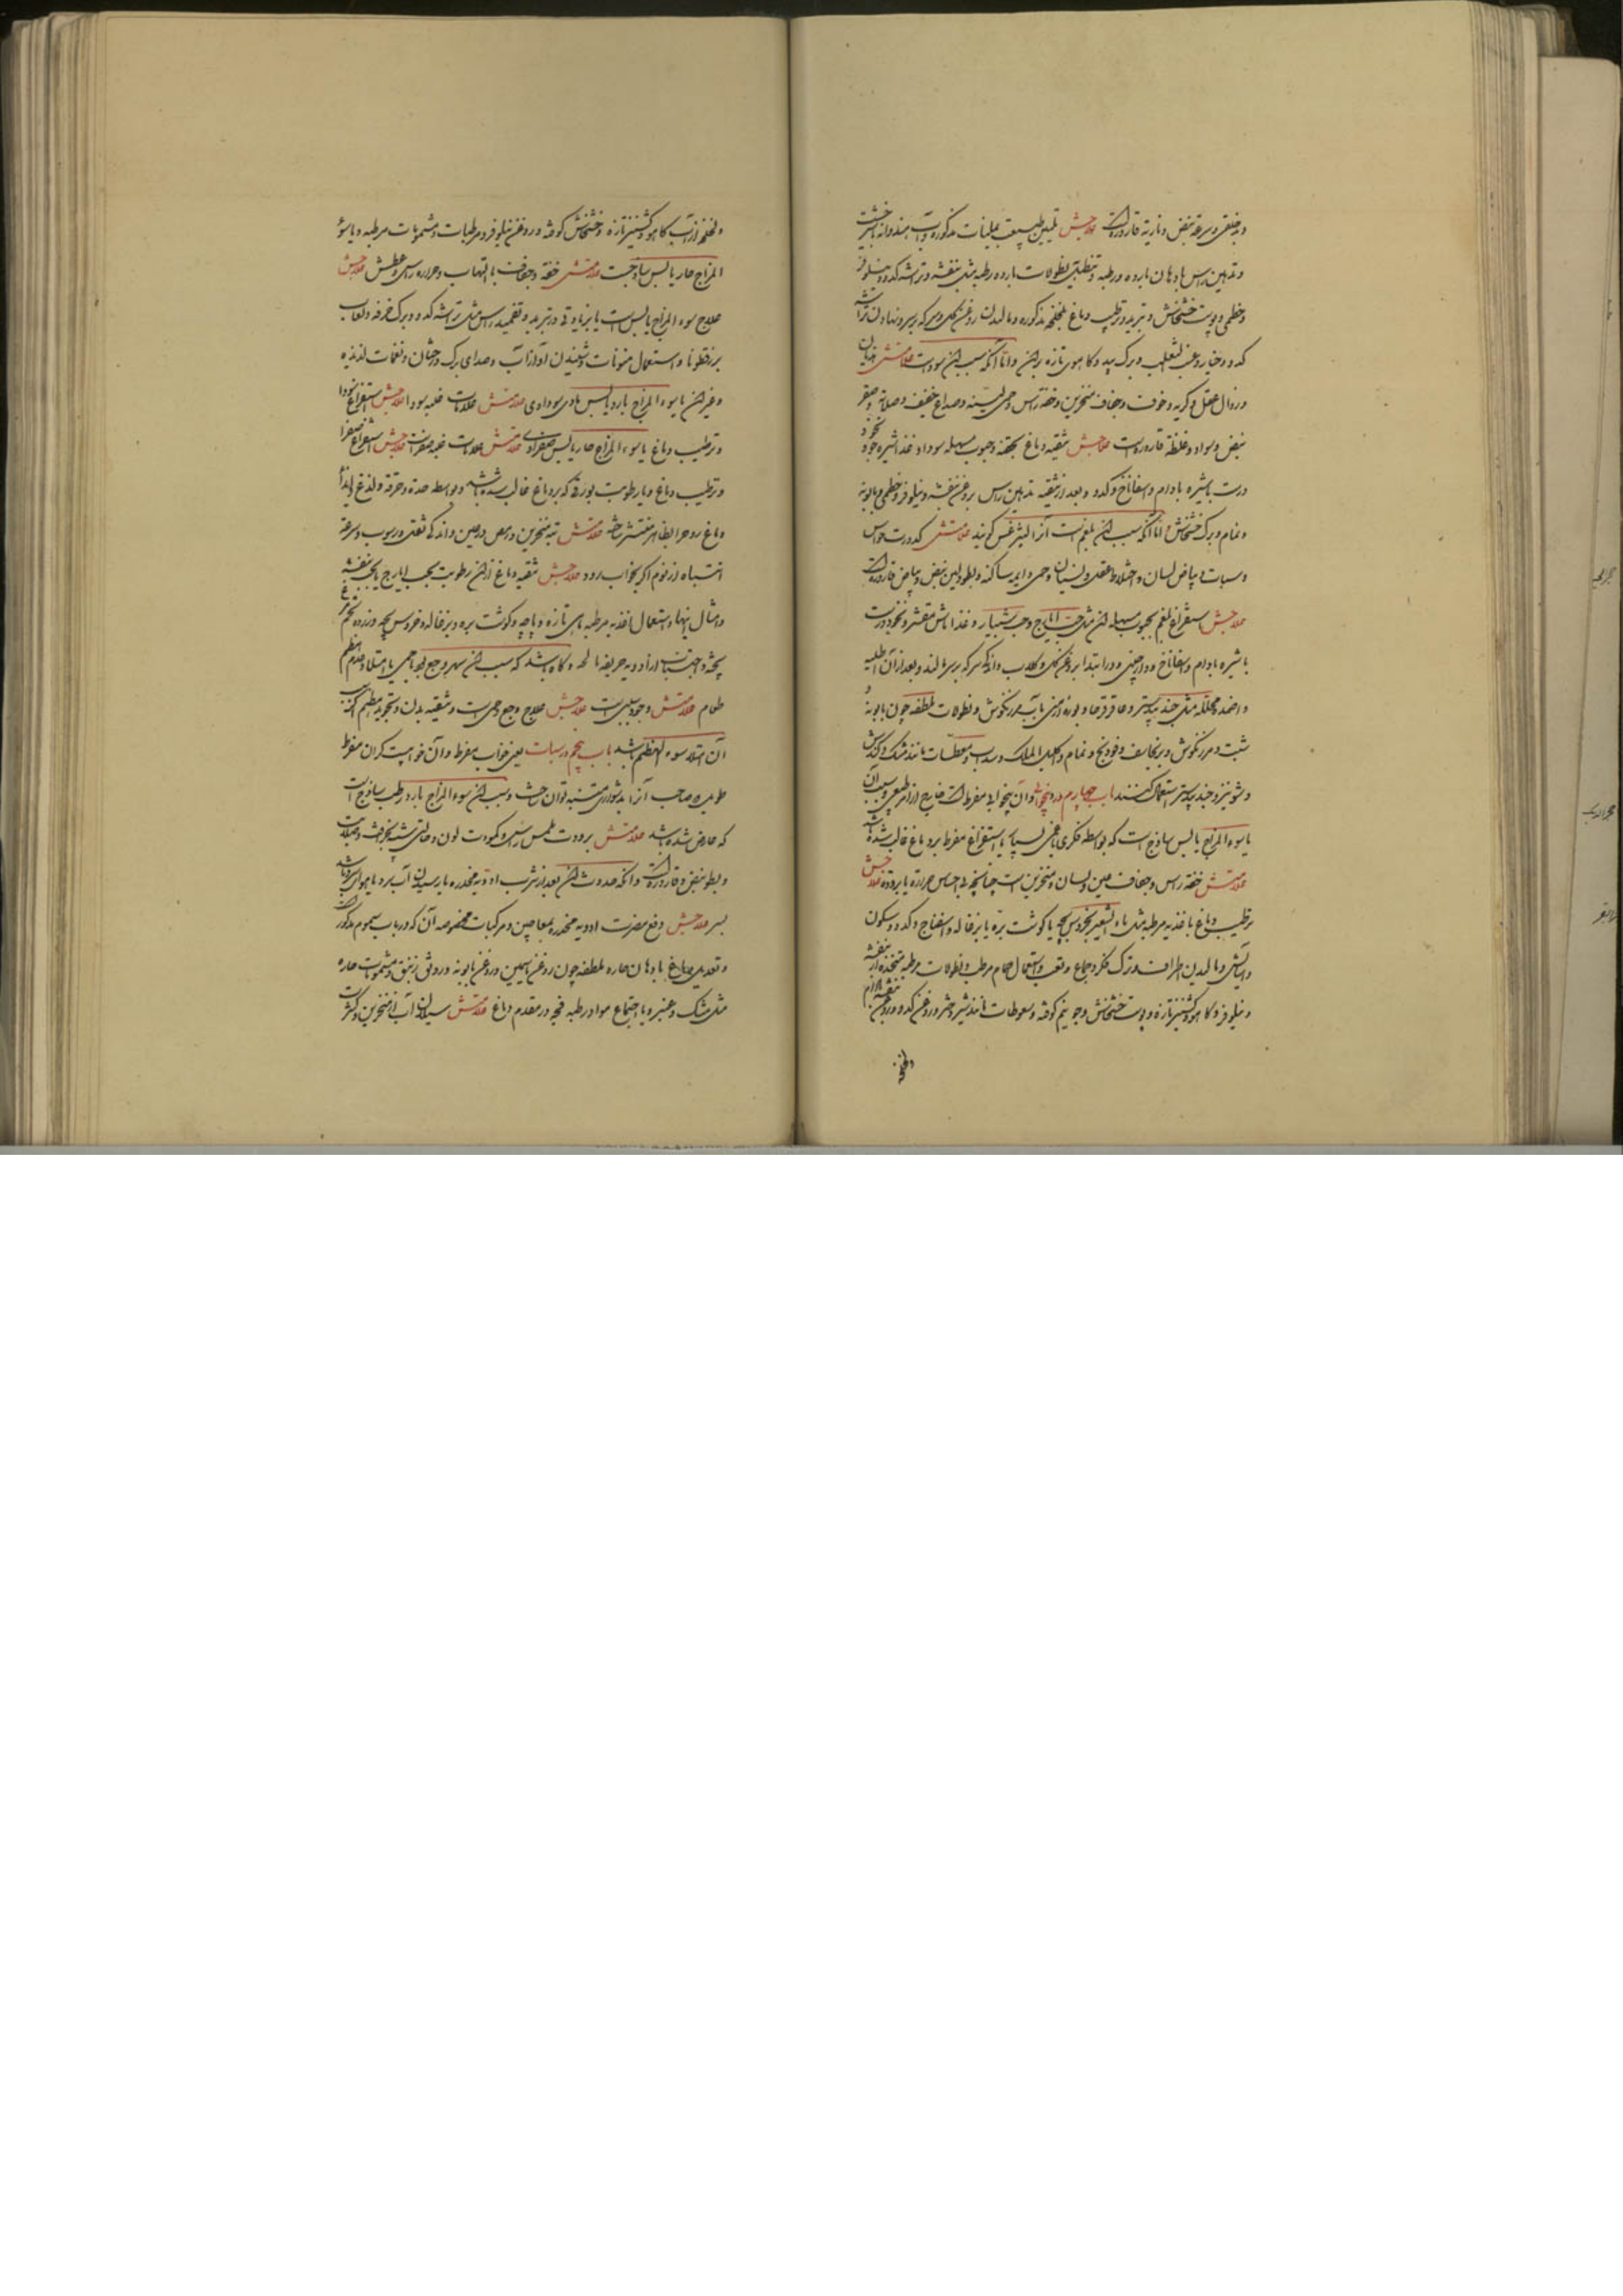 و بدخلقی و سرعة نبض و ناریة قاروره است علاجش تلیین طبیعت بملینات مذکوره و آب هندوانه شیرخشت
و تدهین راس بادهان بارده و رطبه و تنطیل بنطولات بارده رطبه مثل بنفشه و تراشه کدو و نیلوفر
و خطمی و پوست خشخاش و تبرید و ترطیب دماغ بلخلخه مذکوره و مالیدن روغن گل و سرکه بر سر و نهادن تراشه
کدو و خیار و عنب الثعلب و برگ بید و کاهوی تازه بر آن و اما آنکه سبب آن سوداست علامتش هذیان
و زوال عقل و گریه و خوف و جفاف منخرین و خفة راس و حمی لینه و صداع خفیف و صلابة و صغر
نبض و سواد و غلظة قاروره است علاجش تنقیه دماغ بحقنه و حبوب مسهله سودا و غذا شیره جو و نخود
درست باشیره بادام و اسفاناخ و کدو و بعد از تنقیه تدهین راس بروغن بنفشه و نیلوفر و خطمی و بابونه
و نمام و برگ خشخاش و اما آنکه سبب آن بلغم است آنرا لیثرغس گویند علامتش کدورت حواس
و سبات و بیاض لسان و اختلاط عقل و نسیان و حمی دایمه ساکنه و بطو و لین نبض و بیاض قاروره است
علاجش استفراغ بلغم بحبوب مسهله آن مثل حب ایارج و حب شبیار و غذا ماش مقشر و نخود درست
باشیره بادام و اسفاناخ و دارچینی و در ابتدا بروغن گل و گلاب و اندک سرکه بر سر مالند و بعد از آن اطلیه
و اضمده محلله مثل جندبیدستر و عاقرقرحا و بوره ارمنی بآب مرزنگوش و نطولات ملطفه چون بابونه و
شبت و مرزنگوش و برنجاسف و فودنج و نمام و اکلیل الملک و سداب و معطسات مانند مشک و کندش
و شونیز و جندبیدستر استعمال کنند باب چهارم در بیخوابی و آن بیخوابی مفرط است خارج از امر طبیعی و سبب آن
یا سوء المزاج یابس ساذج است که بواسطه فکری یا غمی بسیار یا استفراغ مفرط بر دماغ غالب شده باشد
علامتش خفة راس و جفاف عین و لسان و منخرین است چنانچه بی احساس حرارة یا برودة علاجش
ترطیب دماغ باغذیه مرطبه مثل ماء الشعیر بخروس بچه یا گوشت بره یا بزغاله و اسفناج و کدو و سکون
و آسایش و مالیدن اطراف و ترک فکر و جماع و تعب و استعمال حمام مرطب و نطولات مرطبه متخذه از بنفشه
و نیلوفر و کاهو و کشنیز تازه و پوست خشخاش و جو نیم کوفته و سعوطات مانند شیر دختر و روغن کدو و روغن بنفشه بادام
و لخلخه
و لخلخه از آب کاهو و کشنیز تازه و خشخاش کوفته و روغن نیلوفر و مرطبات و مشمومات مرطبه و یا سوء
المزاج حار یابس ساذج است علامتش خفة و جفاف با التهاب و حراره راس و عطش علاجش
علاج سوء المزاج یابس است با زیادتی در تبرید و تضمید راس مثل تراشه کدو و برگ خرفه و لعاب
بزرقطونا و استعمال منومات و شنیدن آواز آب و صدای برگ درختان و نغمات لذیذه
و غیر آن یا سوء المزاج بارد یابس مادی سوداوی علامتش علامات غلبه سودا علاجش استفراغ سودا
و ترطیب دماغ یا سوء المزاج حار یابس صفراوی علامتش علامات غلبه صفراست علاجش استفراغ صفرا
و ترطیب دماغ و یا رطوبت بورقی که بر دماغ غالب شده باشد و بواسطه حدة و حرقة و لذع و ایذا
دماغ روح را بظاهر منتشر ساخته علامتش تبة منخرین و رمص در عین و اندکی ثقل و رسوب و سرعة
انتباه از نوم اگر بخواب رود علاجش تنقیه دماغ از آن رطوبت بحب ایارج یا بحب بنفشه
و امثال اینها و استعمال اغذیه مرطبه ماهی تازه و پاچه و گوشت بره و بزغاله و خروس بچه و زرده تخم مرغ
پخته و اجتناب از ادویه حریفه مالحه و گاه باشد که سبب آن سهر وجع بود یا حمی یا امتلا و عدم هضم
طعام علامتش وجود سبب است علاجش علاج وجع و حمی است و تنقیه بدن و تجوید هضم اگر سبب
آن امتلا و سوء الهضم باشد باب پنجم در سبات یعنی خواب مفرط و آن خوابیست گران مفرط
طویل که صاحب آنرا بدشواری متنبه توان ساخت و سبب آن سوء المزاج بارد رطب ساذج است
که عارض شده باشد علامتش برودت ملمس راس و کمودت لون و حالتی شبیه بخرفت و صلابت
و بطو نبض و قاروره است و آنکه حدوث آن بعد از شرب ادویه مخدره یا رسیدن آب سرد یا هوای سرد باشد
بسر علاجش دفع مضرت ادویه مخدره بمعاجین و مرکبات مخصوصه آن که در باب سموم مذکور است
و تعدیل دماغ بادهان حاره ملطفه چون روغن یاسمین و روغن بابونه و روغن زنبق و مشمومات حاره
مثل مشک و عنبر و یا اجتماع مواد رطبه فجه در مقدم دماغ علامتش سیلان آب از منخرین و کثرت